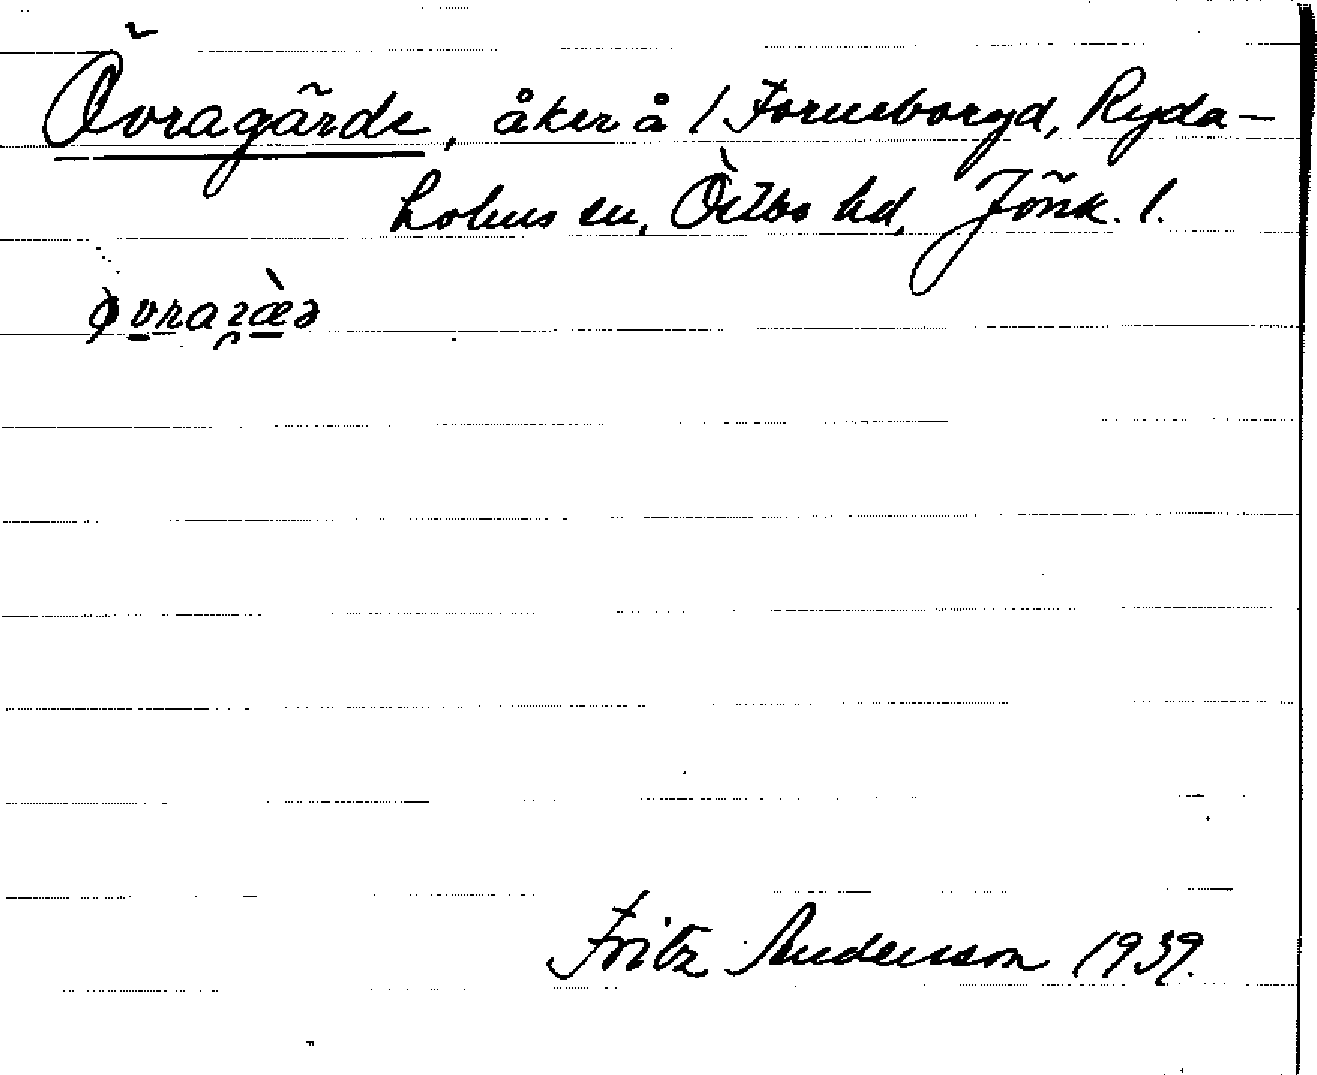 Övragärde, åker å 1 Forneboryd, Ryda-
holms sn, Östbo hd, Jönk. l.
Fritz Andersson 1939.